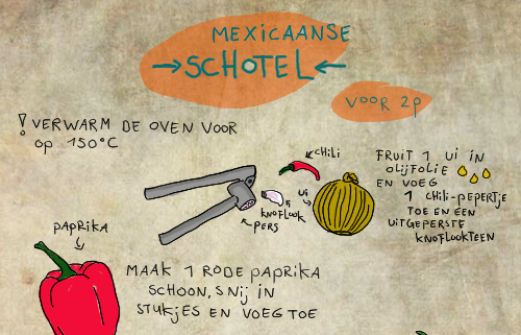 MEXICAANSE
→SCHOTEL←
VOOR 2p
! VERWARM DE OVEN VOOR
op 150°C
CHILI
UI
KNOFLOOK
PERS
FRUIT 1 UI IN
OLIJFOLIE
EN VOEG
1 CHILI-PEPERTJE
TOE EN EEN
UITGEPERSTE
KNOFLOOKTEEN
PAPRIKA
MAAK 1 RODE PAPRIKA
SCHOON, SNIJ IN
STUKJES EN VOEG TOE